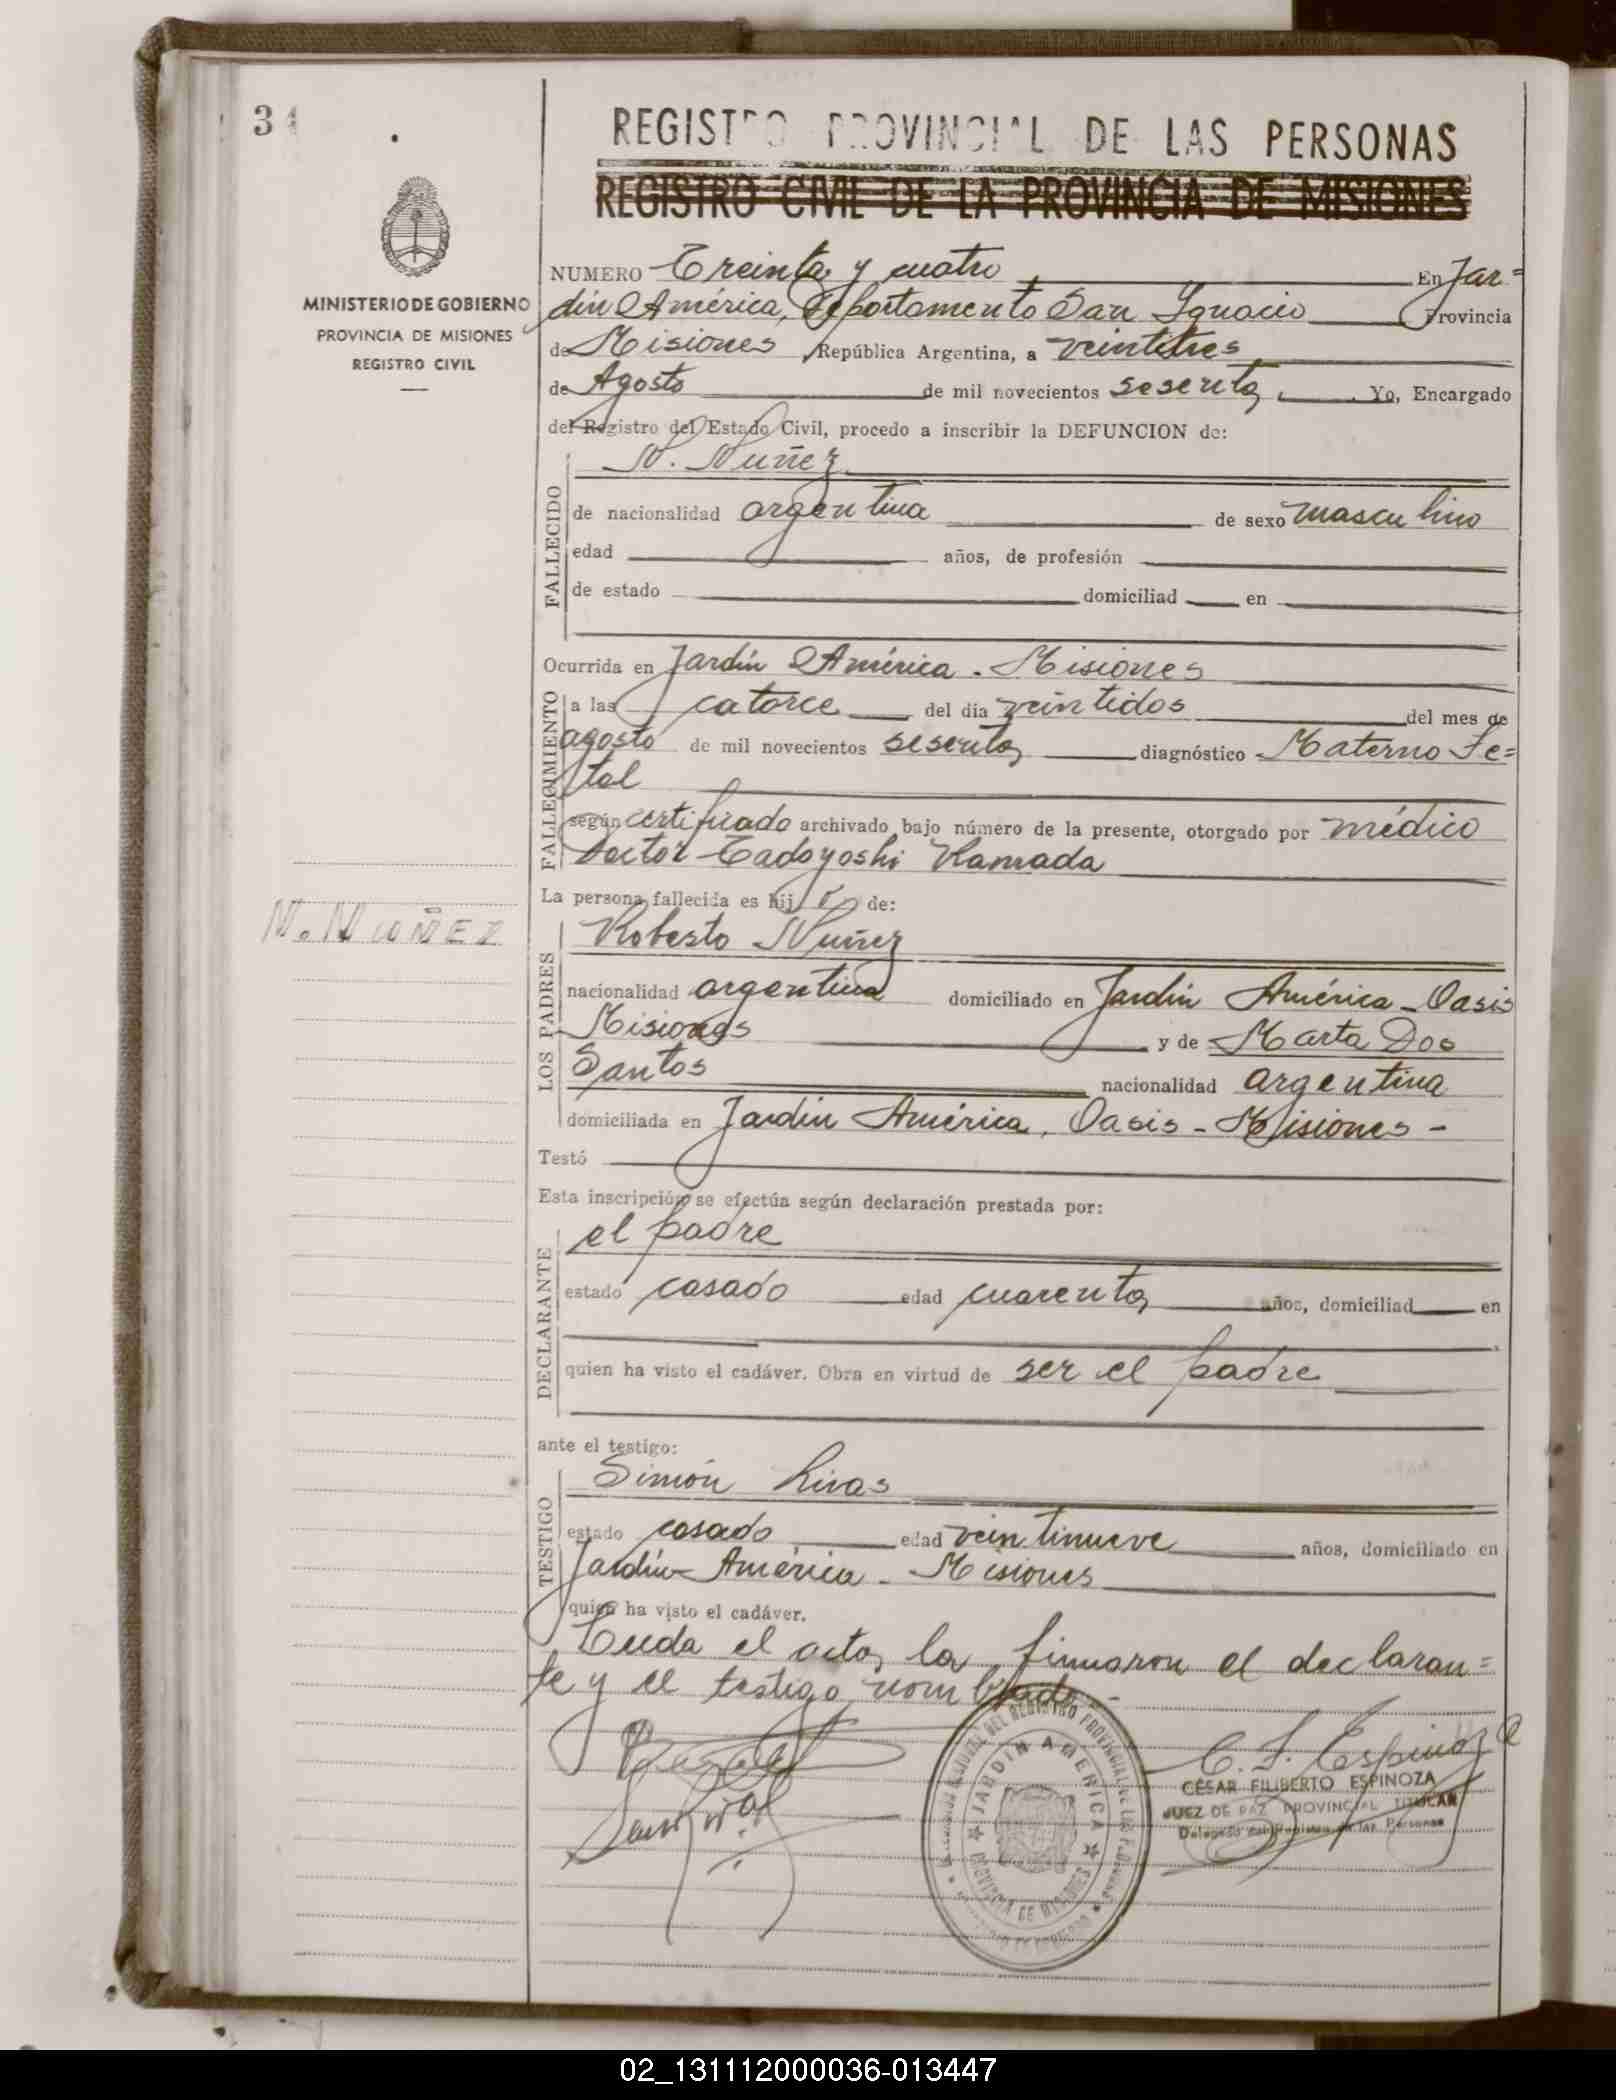 34
REGISTRO PROVINCIAL DE LAS PERSONAS
REGISTRO CIVIL DE LA PROVINCIA DE MISIONES
MINISTERIO DE GOBIERNO
PROVINCIA DE MISIONES
REGISTRO CIVIL
NUMERO Treinta y cuatro En Jar=
dín América, Departamento San Ignacio Provincia
de Misiones, República Argentina, a veintitres
de Agosto de mil novecientos sesenta Yo, Encargado
del Registro del Estado Civil, procedo a inscribir la DEFUNCION de:
FALLECIDO
N. Nuñez
de nacionalidad argentina de sexo masculino
edad años, de profesión
de estado domiciliad en
Ocurrida en Jardín América - Misiones
FALLECIMIENTO
a las catorce del dia veintidos del mes de
agosto de mil novecientos sesenta diagnóstico Materno Fe=
tal
según certificado archivado bajo número de la presente, otorgado por médico
Doctor Tadoyoshi Hamada
La persona fallecida es hijo de:
N. NUÑEZ
LOS PADRES
Roberto Nuñez
nacionalidad argentina domiciliado en Jardín América - Oasis
Misiones y de Marta Dos
Santos nacionalidad argentina
domiciliada en Jardín América, Oasis - Misiones -
Testó
Esta inscripción se efectúa según declaración prestada por:
DECLARANTE
el padre
estado casado edad cuarenta años, domiciliad en
quien ha visto el cadáver. Obra en virtud de ser el padre
ante el testigo:
TESTIGO
Simón Rivas
estado casado edad veintinueve años, domiciliado en
Jardín América - Misiones
quien ha visto el cadáver.
Leida el acta, la firmaron el declaran=
te y el testigo nombrado.-
C. F. Espinoza
CÉSAR FILIBERTO ESPINOZA
JUEZ DE PAZ PROVINCIAL TITULAR
Delegado del Registro de las Personas
JARDIN AMERICA
PROVINCIA DE MISIONES
02_131112000036-013447